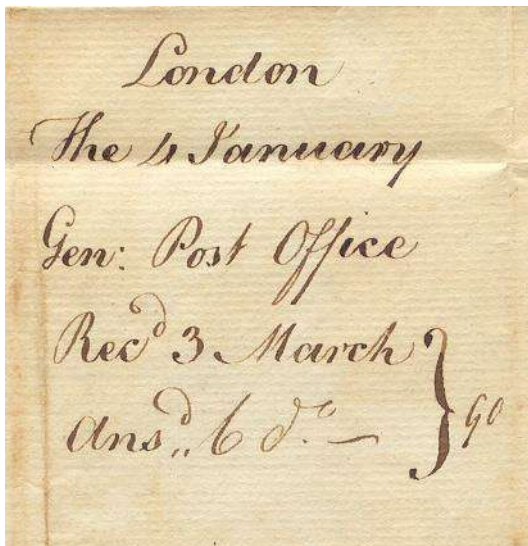 London
The 4 January
Gen: Post Office
Rec^d 3 March
Ans^d,, 6 d^o. — } 90